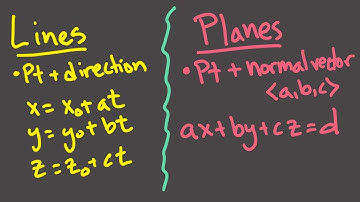 Lines
•Pt + direction
x = x₀ + at
y = y₀ + bt
z = z₀ + ct
Planes
•Pt + normal vector
<a,b,c>
ax+by+cz=d